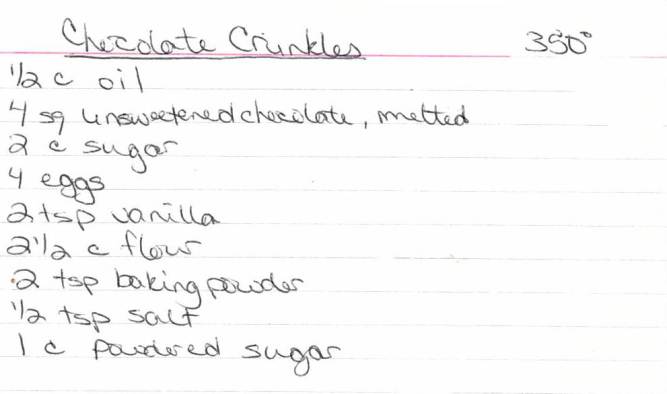 Chocolate Crinkles 350°
1/2 c oil
4 sq unsweetened chocolate, melted
2 c sugar
4 eggs
2 tsp vanilla
2 1/2 c flour
2 tsp baking powder
1/2 tsp salt
1 c powdered sugar